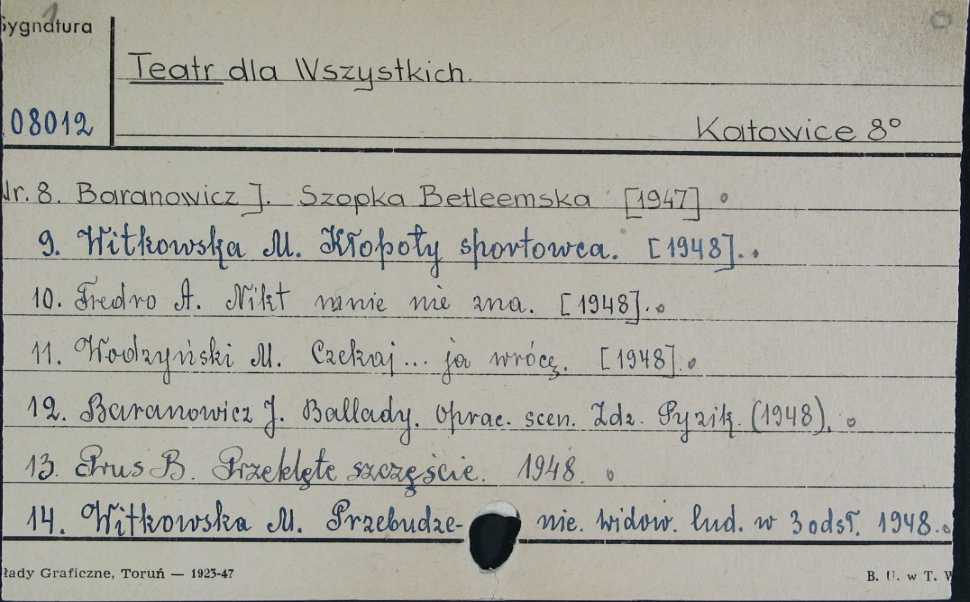 Sygnatura
Teatr dla Wszystkich.
08012
Katowice 8°
Nr. 8. Baranowicz J. Szopka Betleemska [1947]
9. Witkowska M. Kłopoty sportowca. [1948].
10. Fredro A. Nikt mnie nie zna. [1948].
11. Wodzyński M. Czekaj... ja wrócę. [1948].
12. Baranowicz J. Ballady. Oprac. scen. Zdz. Pyzik. (1948).
13. Prus B. Przeklęte szczęście. 1948.
14. Witkowska M. Przebudze- nie. widow. lud. w 3 odsł. 1948.
łady Graficzne, Toruń — 1923-47
B. U. w T. W